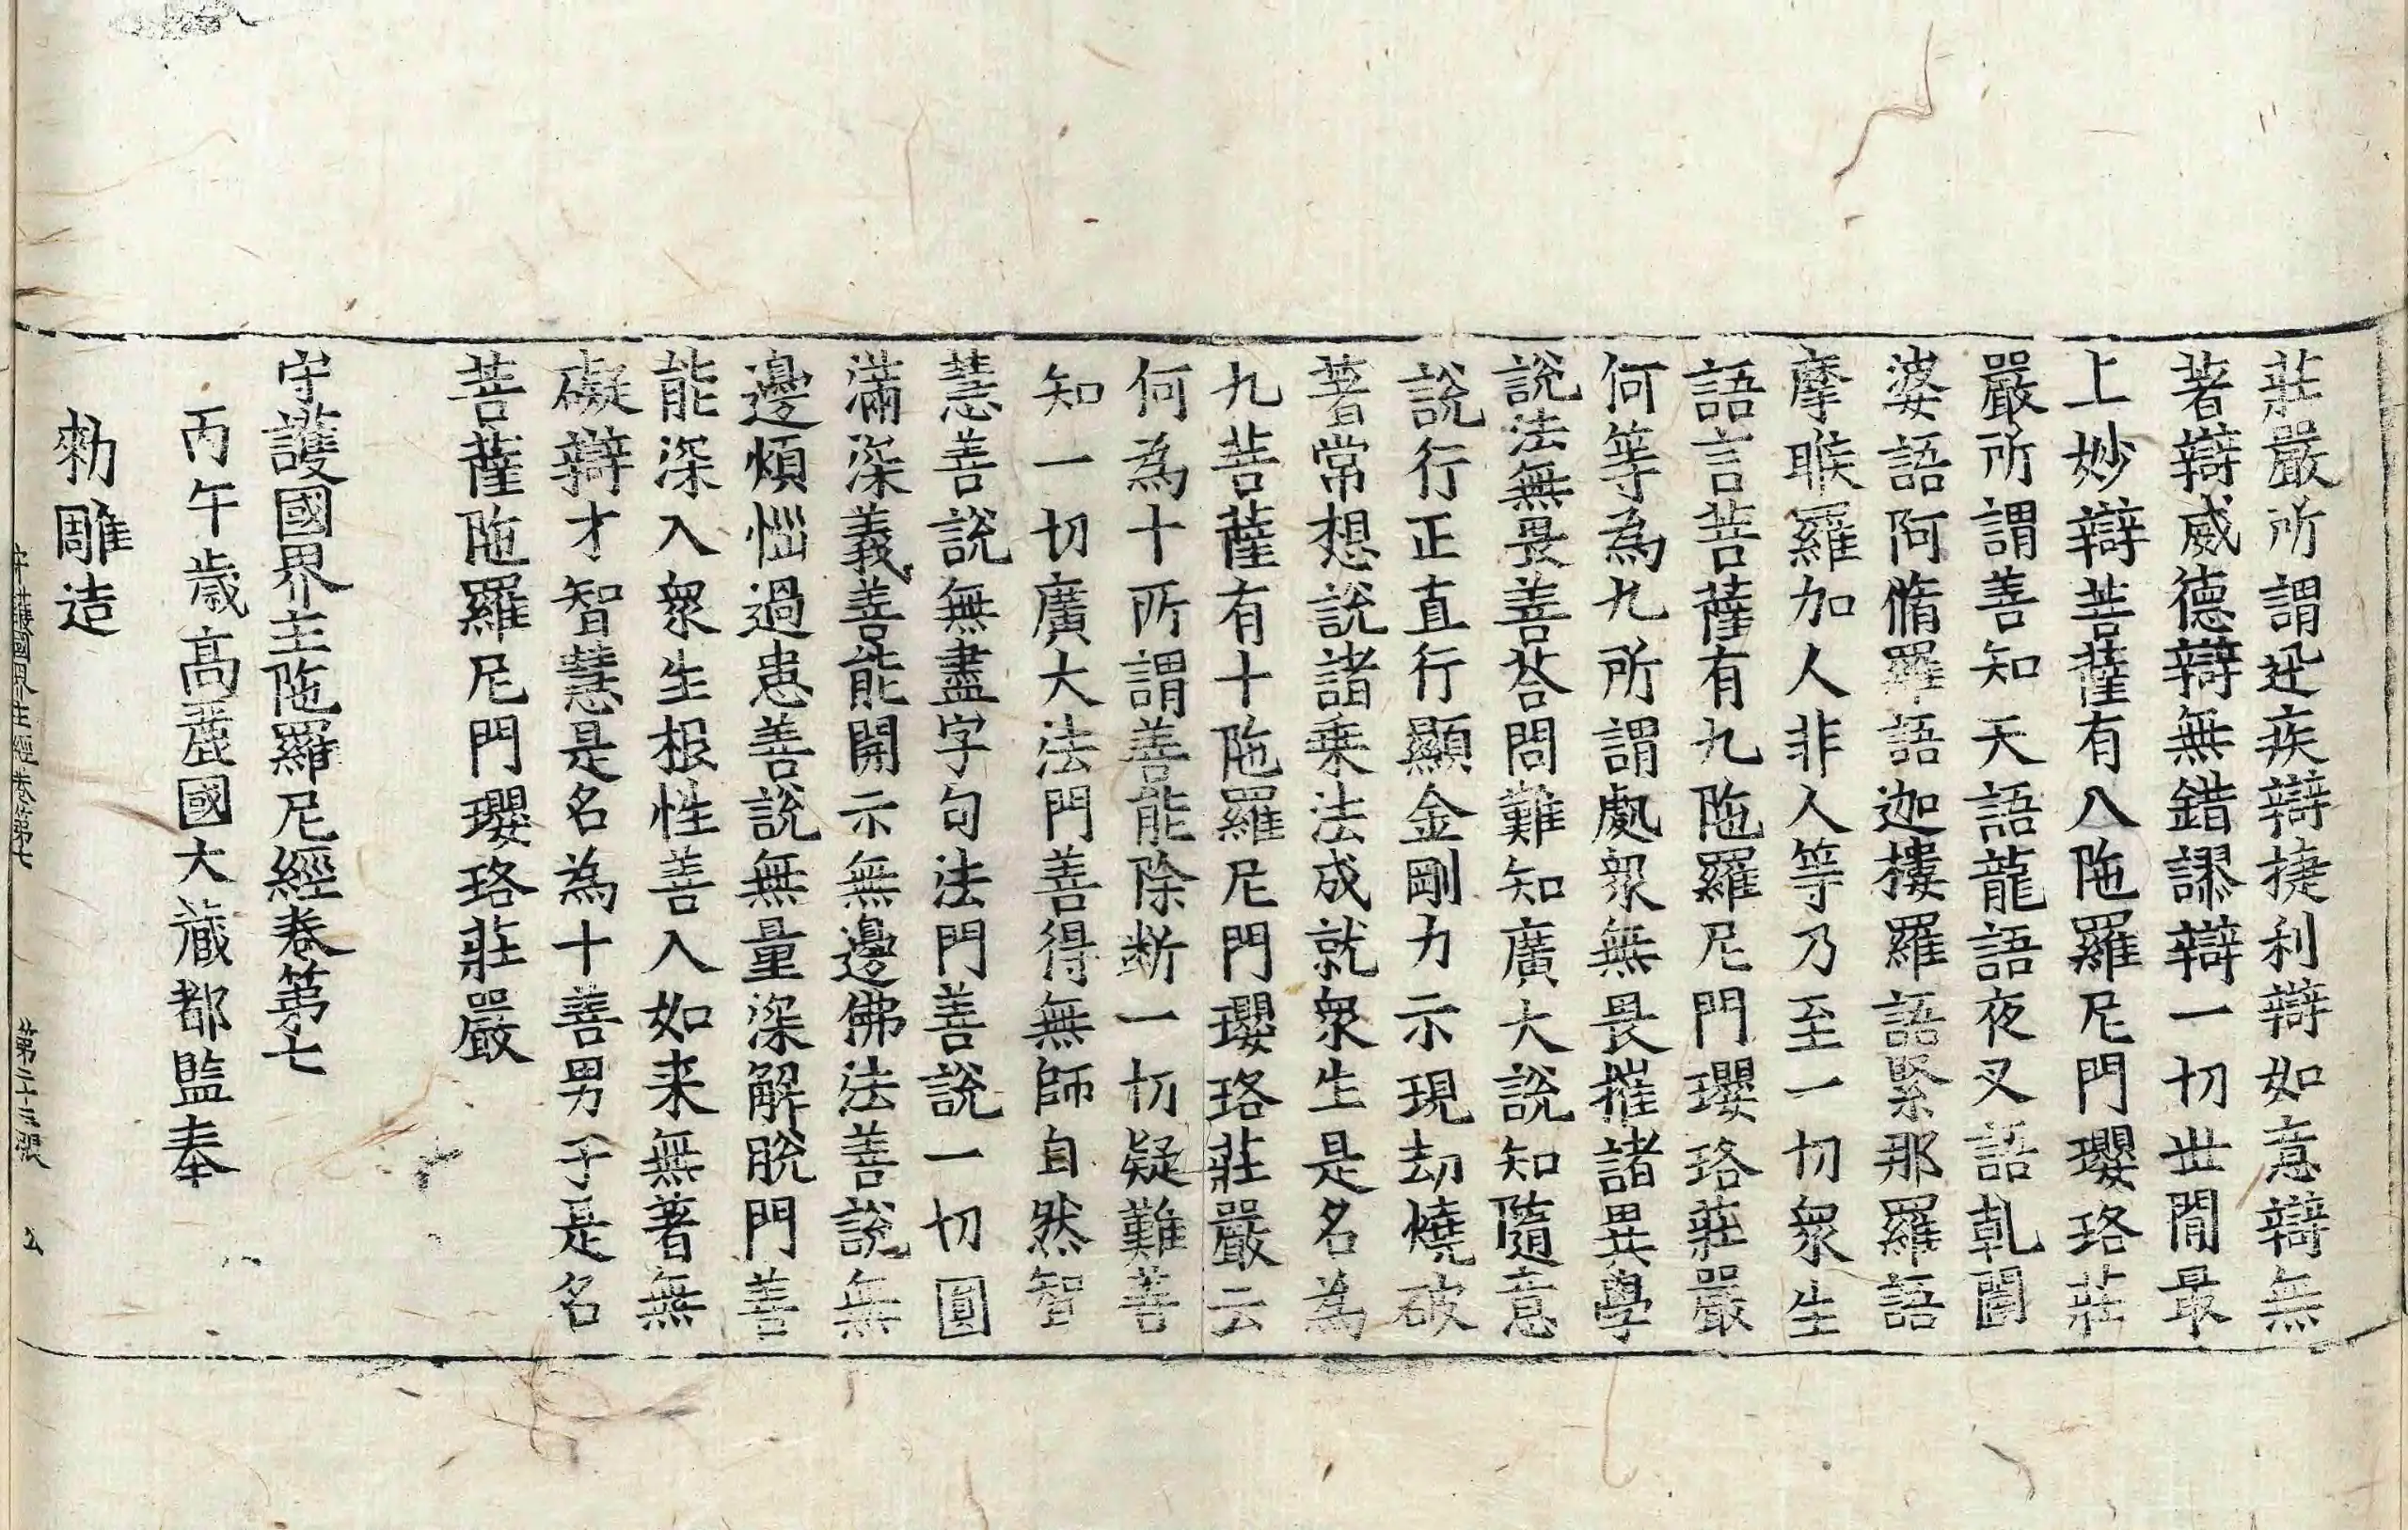 莊嚴所謂迅疾辯捷利辯如意辯無
著辯威德辯無錯謬辯一切世閒最
上妙辯菩薩有八陁羅尼門瓔珞莊
嚴所謂善知天語龍語夜叉語乹闥
婆語阿脩羅語迦樓羅語緊那羅語
摩睺羅加人非人等乃至一切衆生
語言菩薩有九陁羅尼門瓔珞莊嚴
何等為九所謂處衆無畏摧諸異學
說法無畏善荅問難知廣大說知隨意
說行正直行顯金剛力示現劫燒破
著常想說諸乗法成就衆生是名為
九菩薩有十陁羅尼門瓔珞莊嚴云
何為十所謂善能除断一切疑難善
知一切廣大法門善得無師自然智
慧善說無盡字句法門善說一切圓
滿深義善能開示無邊佛法善說無
邊煩惱過患善說無量深解脫門善
能深入衆生根性善入如来無著無
礙辯才智慧是名為十善男子是名
菩薩陁羅尼門瓔珞莊嚴
守護國界主陁羅尼經卷第七
丙午歲高麗國大藏都監奉
勑雕造
守護國界主經卷第七 第二十三張 公